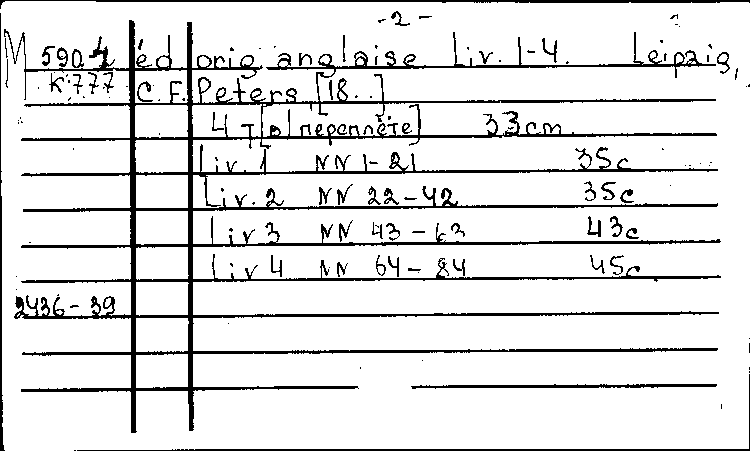 - 2 -
M 5904 éd. orig. anglaise. Liv. 1-4. Leipzig,
K777 C.F. Peters, [18..]
4 т [в 1 переплёте] 33 cm.
Liv. 1 NN 1-21 35 c
Liv. 2 NN 22-42 35 c
Liv 3 NN 43-63 43 c
Liv 4 NN 64-84 45 c
2436-39